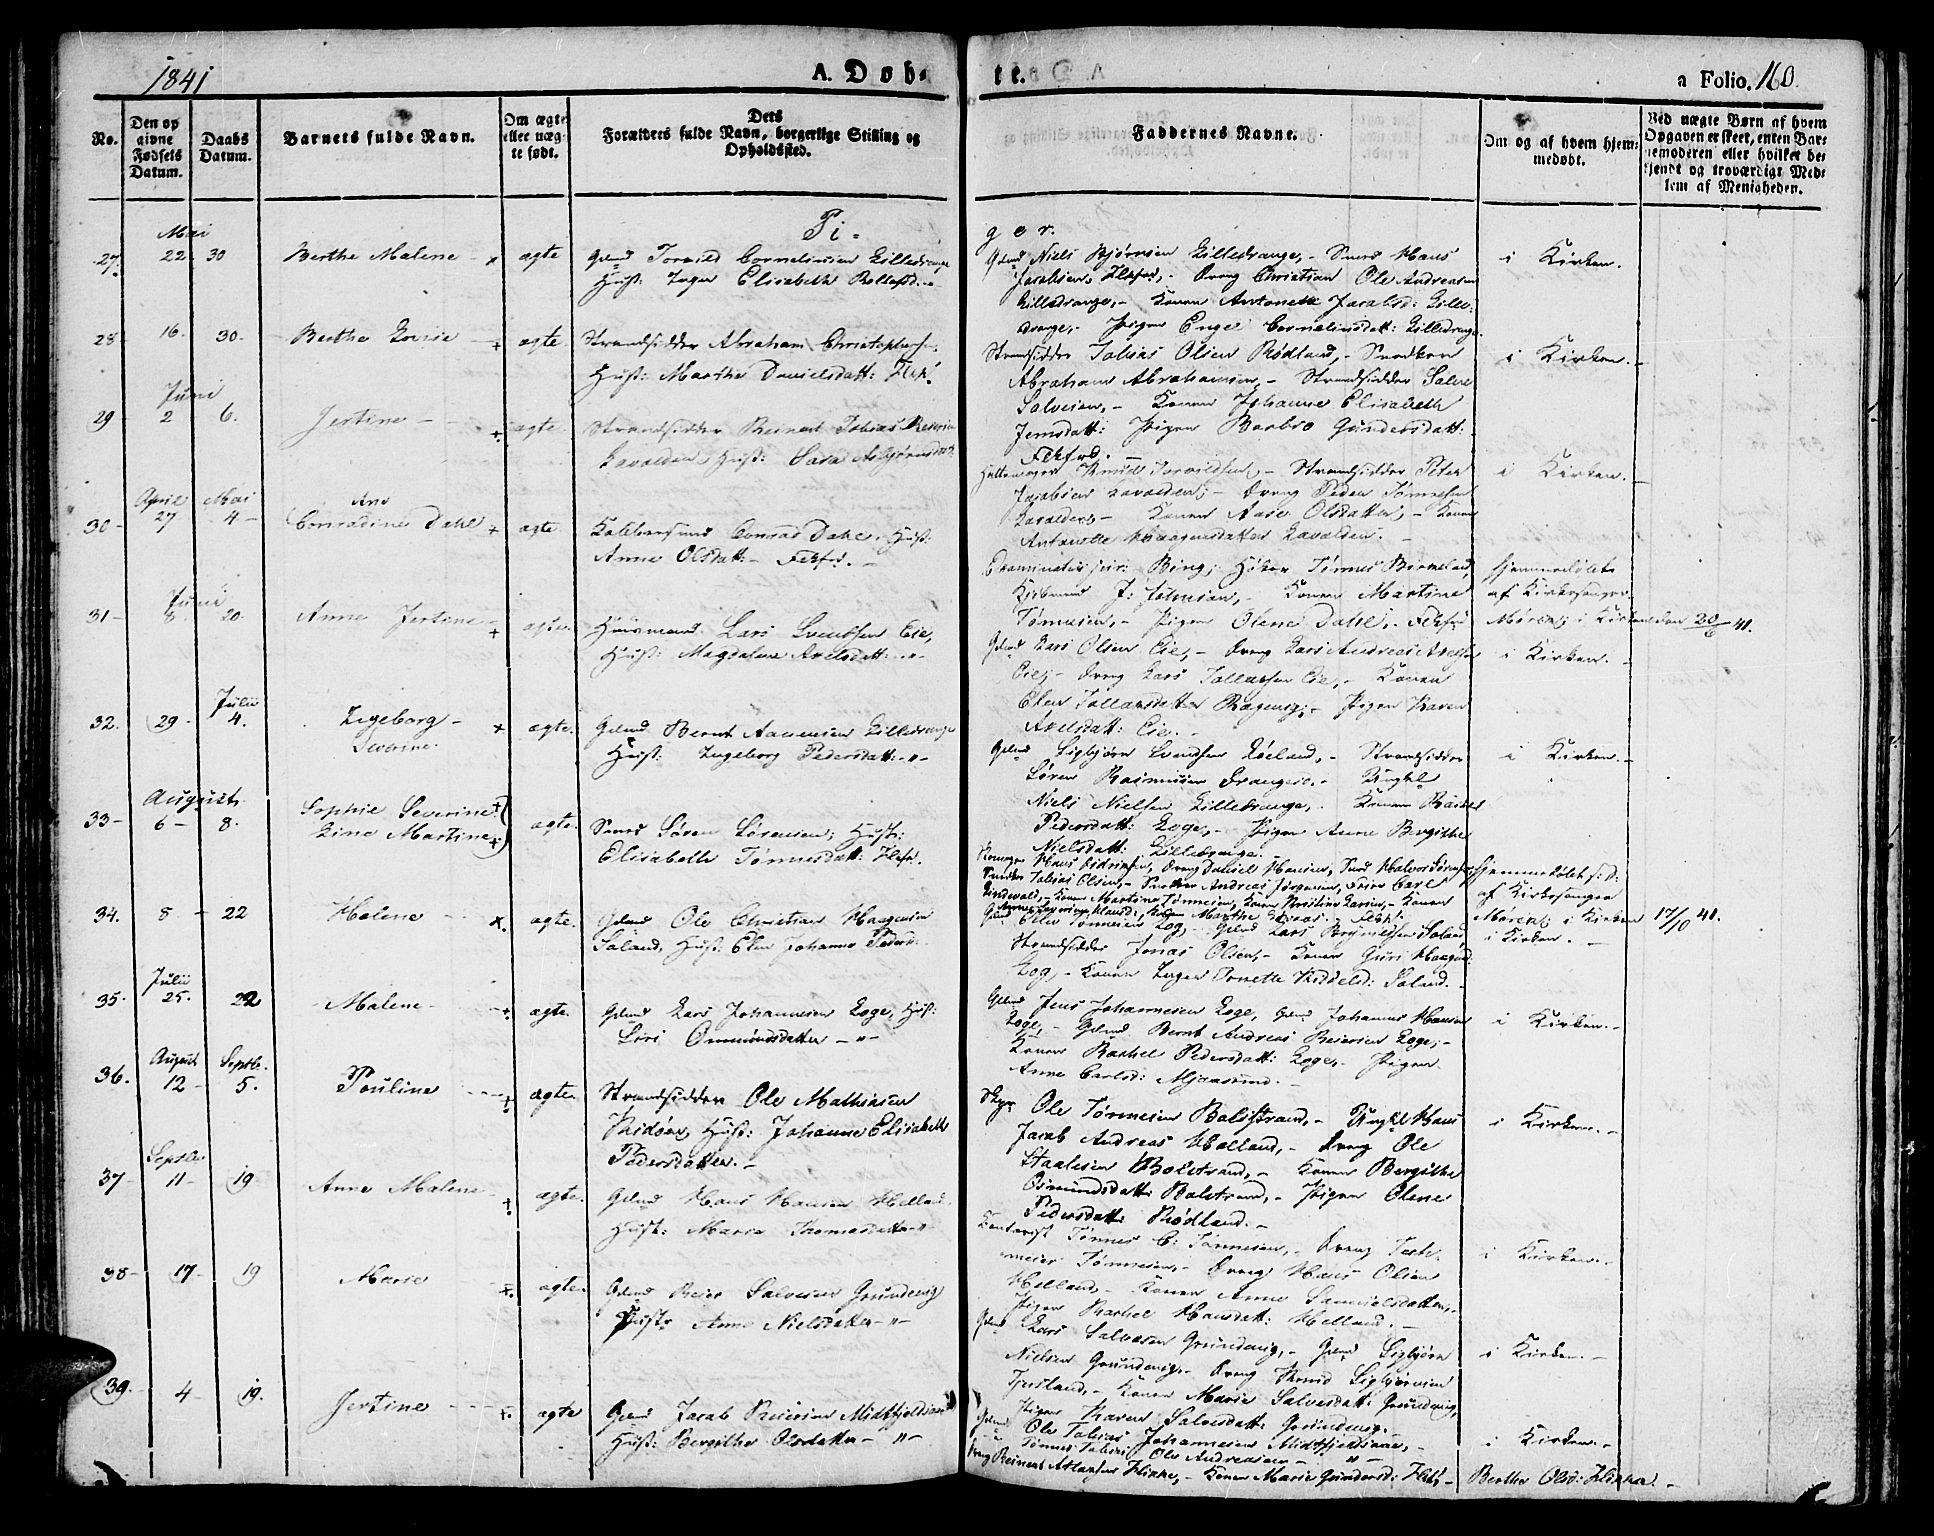 1841
A. Døb-
te.
a Folio. 160.
No.
Den op
givne
Fødsels
Datum.
Daabs
Datum.
Barnets fulde Navn.
Om ægte
eller uæg-
te født.
Dets
Forældres fulde Navn, borgerlige Stilling og
Opholdssted.
Faddernes Navne.
Om og af hvem hjem-
medøbt.
Ved uægte Børn af hvem
Opgaven er skeet, enten Bar-
nemoderen eller hvilket be-
kjendt og troværdigt Med-
lem af Menigheden.
Pi-
ger.
Mai
27. 22 30 Berthe Malene ægte Gdmd Torkild Cornelinssen Lilledrange
Hust: Inger Elisabeth Rollefsd.
Gdmd Niels Bjørnsen Lilledrange, Smed Hans
Jacobsen, Flekfrd, Dreng Christian Ole Andreasen
Lilledrange, Konen Antonette Jacobsd: Lille-
drange, Pigen Enge Cornelinsdatt: Lilledrange
i Kirken.
28 16. 30. Berthe Lovise ægte. Strandsidder Abraham Christophers.
Hust: Marthe Danielsdatt: Flek.
Strandsidder Tobias Olsen Rødland, Snedkeren
Abraham Abrahamsen, Strandsidder Salve
Salvesen, Konen Johanne Elisabeth
Jensdatt: Pigen Barbro Gundersdatt:
Flekfrd.
i Kirken.
Juni
29 2 6. Jertine ægte. Strandsidder Reinert Tobias Reiersen
Lavolden, Hust: Sara Asbjørnsdatt.
Knud Torkildsen, Strandsidder Peter
Jacobsen Lavolden, Dreng Peder Tønnesen
Lavolden, Konen Aase Olsdatter, Konen
Antonette Haagensdatter Lavolden.
i Kirken.
April Mai
30 27 4 Ane
Conradine Dahl ægte Conrad Dahl. Hust:
Anne Olsdatt: Flekfrd.
Examinatus jur: Bing, Høker Tønnes Birkeland,
Kjøbmand J: Johnsen, Konen Martine
Tønnesen, Pigen Olene Dahl, Flekfrd
Hjemmedøbt
af Kirkesanger
Møren, i Kirken den 20/6 41.
Juni
31 8 20. Anne Jertine ægte. Huusmand Lars Svendsen Eie,
Hust: Magdalene Axelsdatt:
Gdmd Lars Olsen Eie, Dreng Lars Andreas Axelsen
Eie, Dreng Lars Tollaksen Eie, Konen
Elen Tollaksdatter Ragevig, Pigen Karen
Axelsdatt: Eie.
i Kirken.
Julii
32. 29 4. Ingeborg
Severine ægte. Gdmd Bernt Aanensen Lilledrange
Hust: Ingeborg Pedersdatt:
Gdmd Sigbjørn Svendsen Røiland, Strandsidder
Søren Rasmussen Drangeid, Ungkl
Niels Nielsen Lilledrange, Konen Rachel
Pedersdatt: Loge, Pigen Anne Bergithe
Nielsdatt: Lilledrange.
i Kirken.
August.
33 6 8. Sophie Severine
Line Martine ægte. Smed Søren Sørensen, Hust:
Elisabeth Tønnesdatt: Flekfrd.
Hans Didriksen, Dreng Daniel Hansen, Smed Halvor Sørensen
Snedker Tobias Olsen, Snedker Andreas Jørgensen, Carl
Lindevold, Konen Martine Tønnesen, Konen Larsen, Konen
Konen Marthe
Hjemmedøbt s: D:
af Kirkesanger
Møren, i Kirken 17/10 41.
34. 8 22 Helene ægte. Gdmd Ole Christian Haagensen
Søland, Hust: Elen Johanne Peders.
Gdmd Elev Tønnesen Log, Gdmd Lars Søland
Strandsidder Jonas Olsen, Konen Guri Haagensd:
Log, Konen Inger Tonette Kiddelsd: Søland.
i Kirken.
Julii
35. 25. 22 Malene ægte. Gdmd Lars Johannesen Loge, Hust:
Siri Ommundsdatter
Gdmd Jens Johannesen Loge, Gdmd Johannes Hansen
Loge, Gdmd Bernt Andreas Reiersen Loge,
Konen Rachel Pedersdatt: Loge, Pigen
Anne Carlsd:
i Kirken.
August Septb.
36. 12 5. Pouline ægte. Strandsidder Ole Mathiasen
Hidøen, Hust: Johanne Elisabeth
Pedersdatter.
Ole Tønnesen Bolstrand, Ungkl Hans
Jacob Andreas Helland, Dreng Ole
Staalesen Bolstrand, Konen Bergithe
Osmundsdatt: Bolstrand, Pigen Olene
Pedersdatt: Rødland.
i Kirken.
Septbr
37 11 19 Anne Malene ægte. Gdmd Hans Hansen Helland
Hust: Maria Thomasdatter
Kontorist Tønnes C: Tønnesen, Dreng
Tønnesen, Dreng Hans Olsen
Helland, Konen Anne Samuelsdatter,
Pigen Rachel Hansdatt: Helland.
i Kirken.
38 17 19 Marie ægte. Gdmd Reier Salvesen Grundevig
Hust: Anne Nielsdatter
Gdmd Lars Salvesen Grundevig, Gdmd Sigbjørn
Nielsen Grundevig, Dreng Sigbjørnsen
Konen Marie Salvesdatt: Grundevig,
Pigen Karen Salvesdatt: Grundevig.
i Kirken.
39. 4 19. Jertine ægte Gdmd Jacob Reiersen Midtfjeldsaae
Hust: Bergithe Olsdatter
Gdmd Ole Tobias Johannesen Midtfjeldsaae,
Tønnes Tobias Ole Andreasen
Dreng Reinert Atlaksen Hikke, Konen Marie Gundersd: Berthe Olsd: Hikke.
i Kirken.